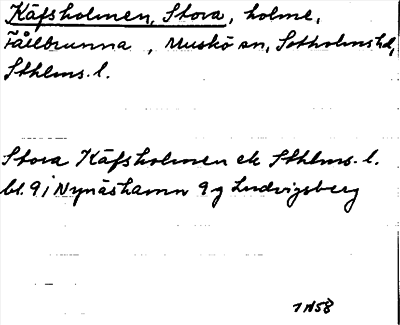 Käfsholmen, Stora, holme,
Fållbrunna, Muskö sn, Sotholms hd,
Sthlms. l.
Stora Käfsholmen ek Sthlms. l.
bl. 9 i Nynäshamn 9 g Ludvigsberg
1958